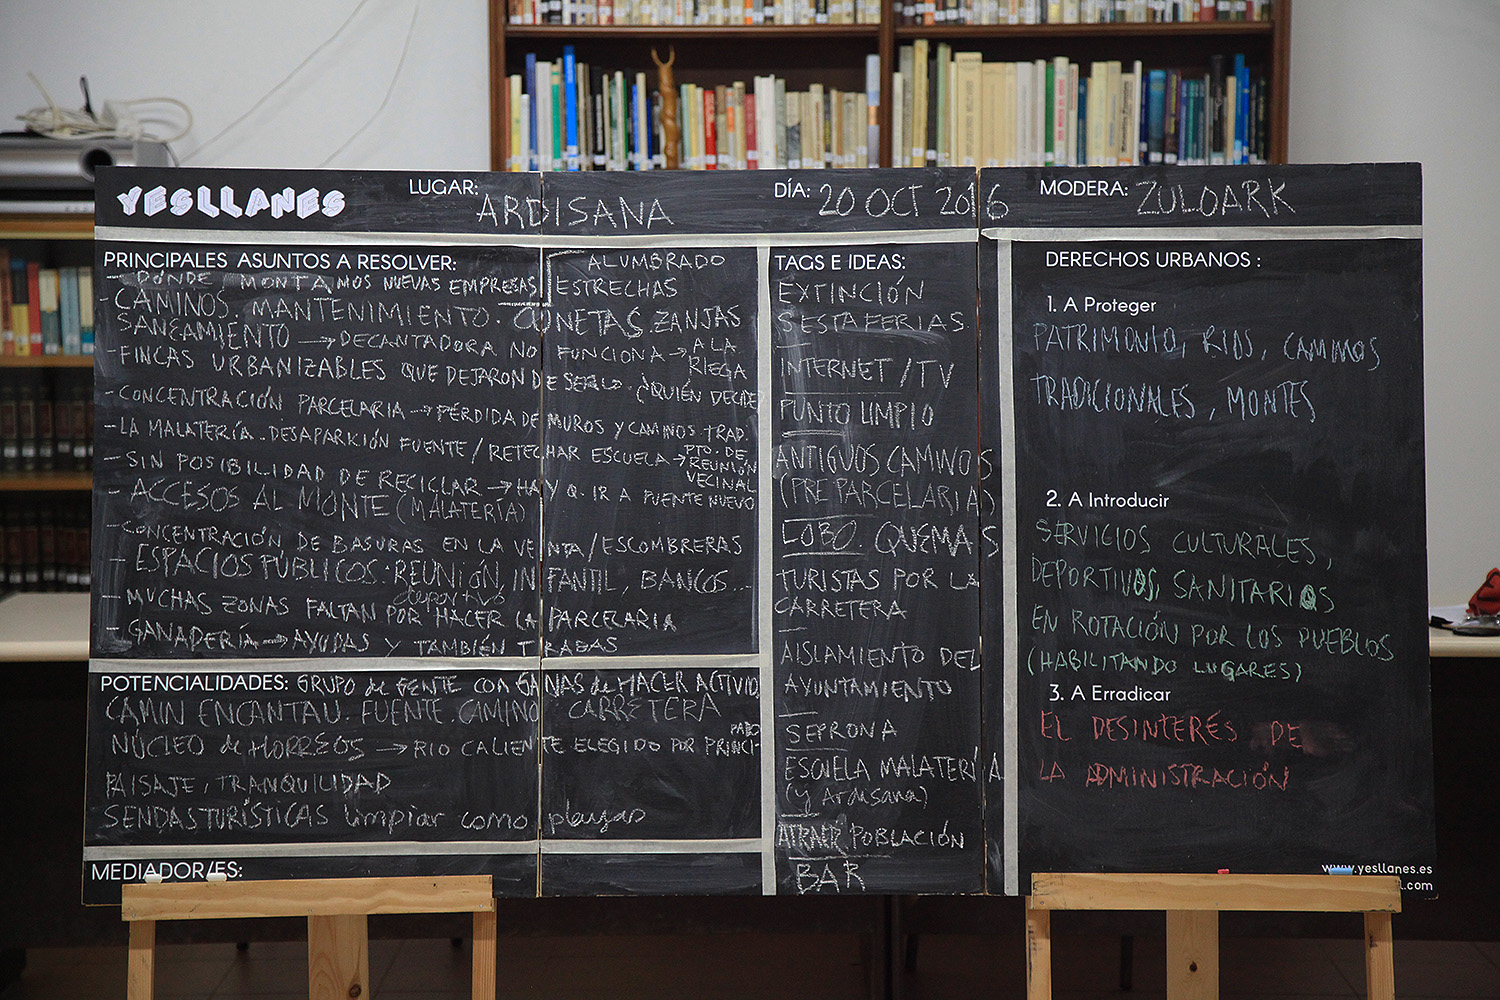 YESLLANES
LUGAR: ARDISANA
DÍA: 20 OCT 2016
MODERA: ZULOARK
PRINCIPALES ASUNTOS A RESOLVER:
- DÓNDE MONTAMOS NUEVAS EMPRESAS
ALUMBRADO
ESTRECHAS
- CAMINOS. MANTENIMIENTO. CUNETAS. ZANJAS
SANEAMIENTO → DECANTADORA NO FUNCIONA → A LA
RIEGA
- FINCAS URBANIZABLES QUE DEJARON DE SERLO. ¿QUIÉN DECIDE
- CONCENTRACIÓN PARCELARIA → PÉRDIDA DE MUROS Y CAMINOS TRAD.
- LA MALATERÍA. DESAPARICIÓN FUENTE / RETECHAR ESCUELA → PTO. DE
REUNIÓN
VECINAL
- SIN POSIBILIDAD DE RECICLAR → HAY Q. IR A PUENTE NUEVO
- ACCESOS AL MONTE (MALATERÍA)
- CONCENTRACIÓN DE BASURAS EN LA VENTA / ESCOMBRERAS
- ESPACIOS PÚBLICOS. REUNIÓN, INFANTIL, BANCOS...
deportivo
- MUCHAS ZONAS FALTAN POR HACER LA PARCELARIA
- GANADERÍA → AYUDAS Y TAMBIÉN TRABAS
POTENCIALIDADES: GRUPO de GENTE CON GANAS de HACER ACTIVID.
CAMIN ENCANTAU. FUENTE. CAMINO CARRETERA
NÚCLEO de HORREOS → RIO CALIENTE ELEGIDO POR PRINCI-
PADO
PAISAJE, TRANQUILIDAD
SENDAS TURÍSTICAS limpiar como playas
MEDIADOR/ES:
TAGS E IDEAS:
EXTINCIÓN
SESTAFERIAS
INTERNET / TV
PUNTO LIMPIO
ANTIGUOS CAMINOS
(PRE PARCELARIA)
LOBO. QUEMAS
TURISTAS POR LA
CARRETERA
AISLAMIENTO DEL
AYUNTAMIENTO
SEPRONA
ESCUELA MALATERÍA
(y Ardisana)
ATRAER POBLACIÓN
BAR
DERECHOS URBANOS :
1. A Proteger
PATRIMONIO, RIOS, CAMINOS
TRADICIONALES, MONTES
2. A Introducir
SERVICIOS CULTURALES,
DEPORTIVOS, SANITARIOS
EN ROTACIÓN POR LOS PUEBLOS
(HABILITANDO LUGARES)
3. A Erradicar
EL DESINTERÉS DE
LA ADMINISTRACIÓN
www.yesllanes.es
l.com